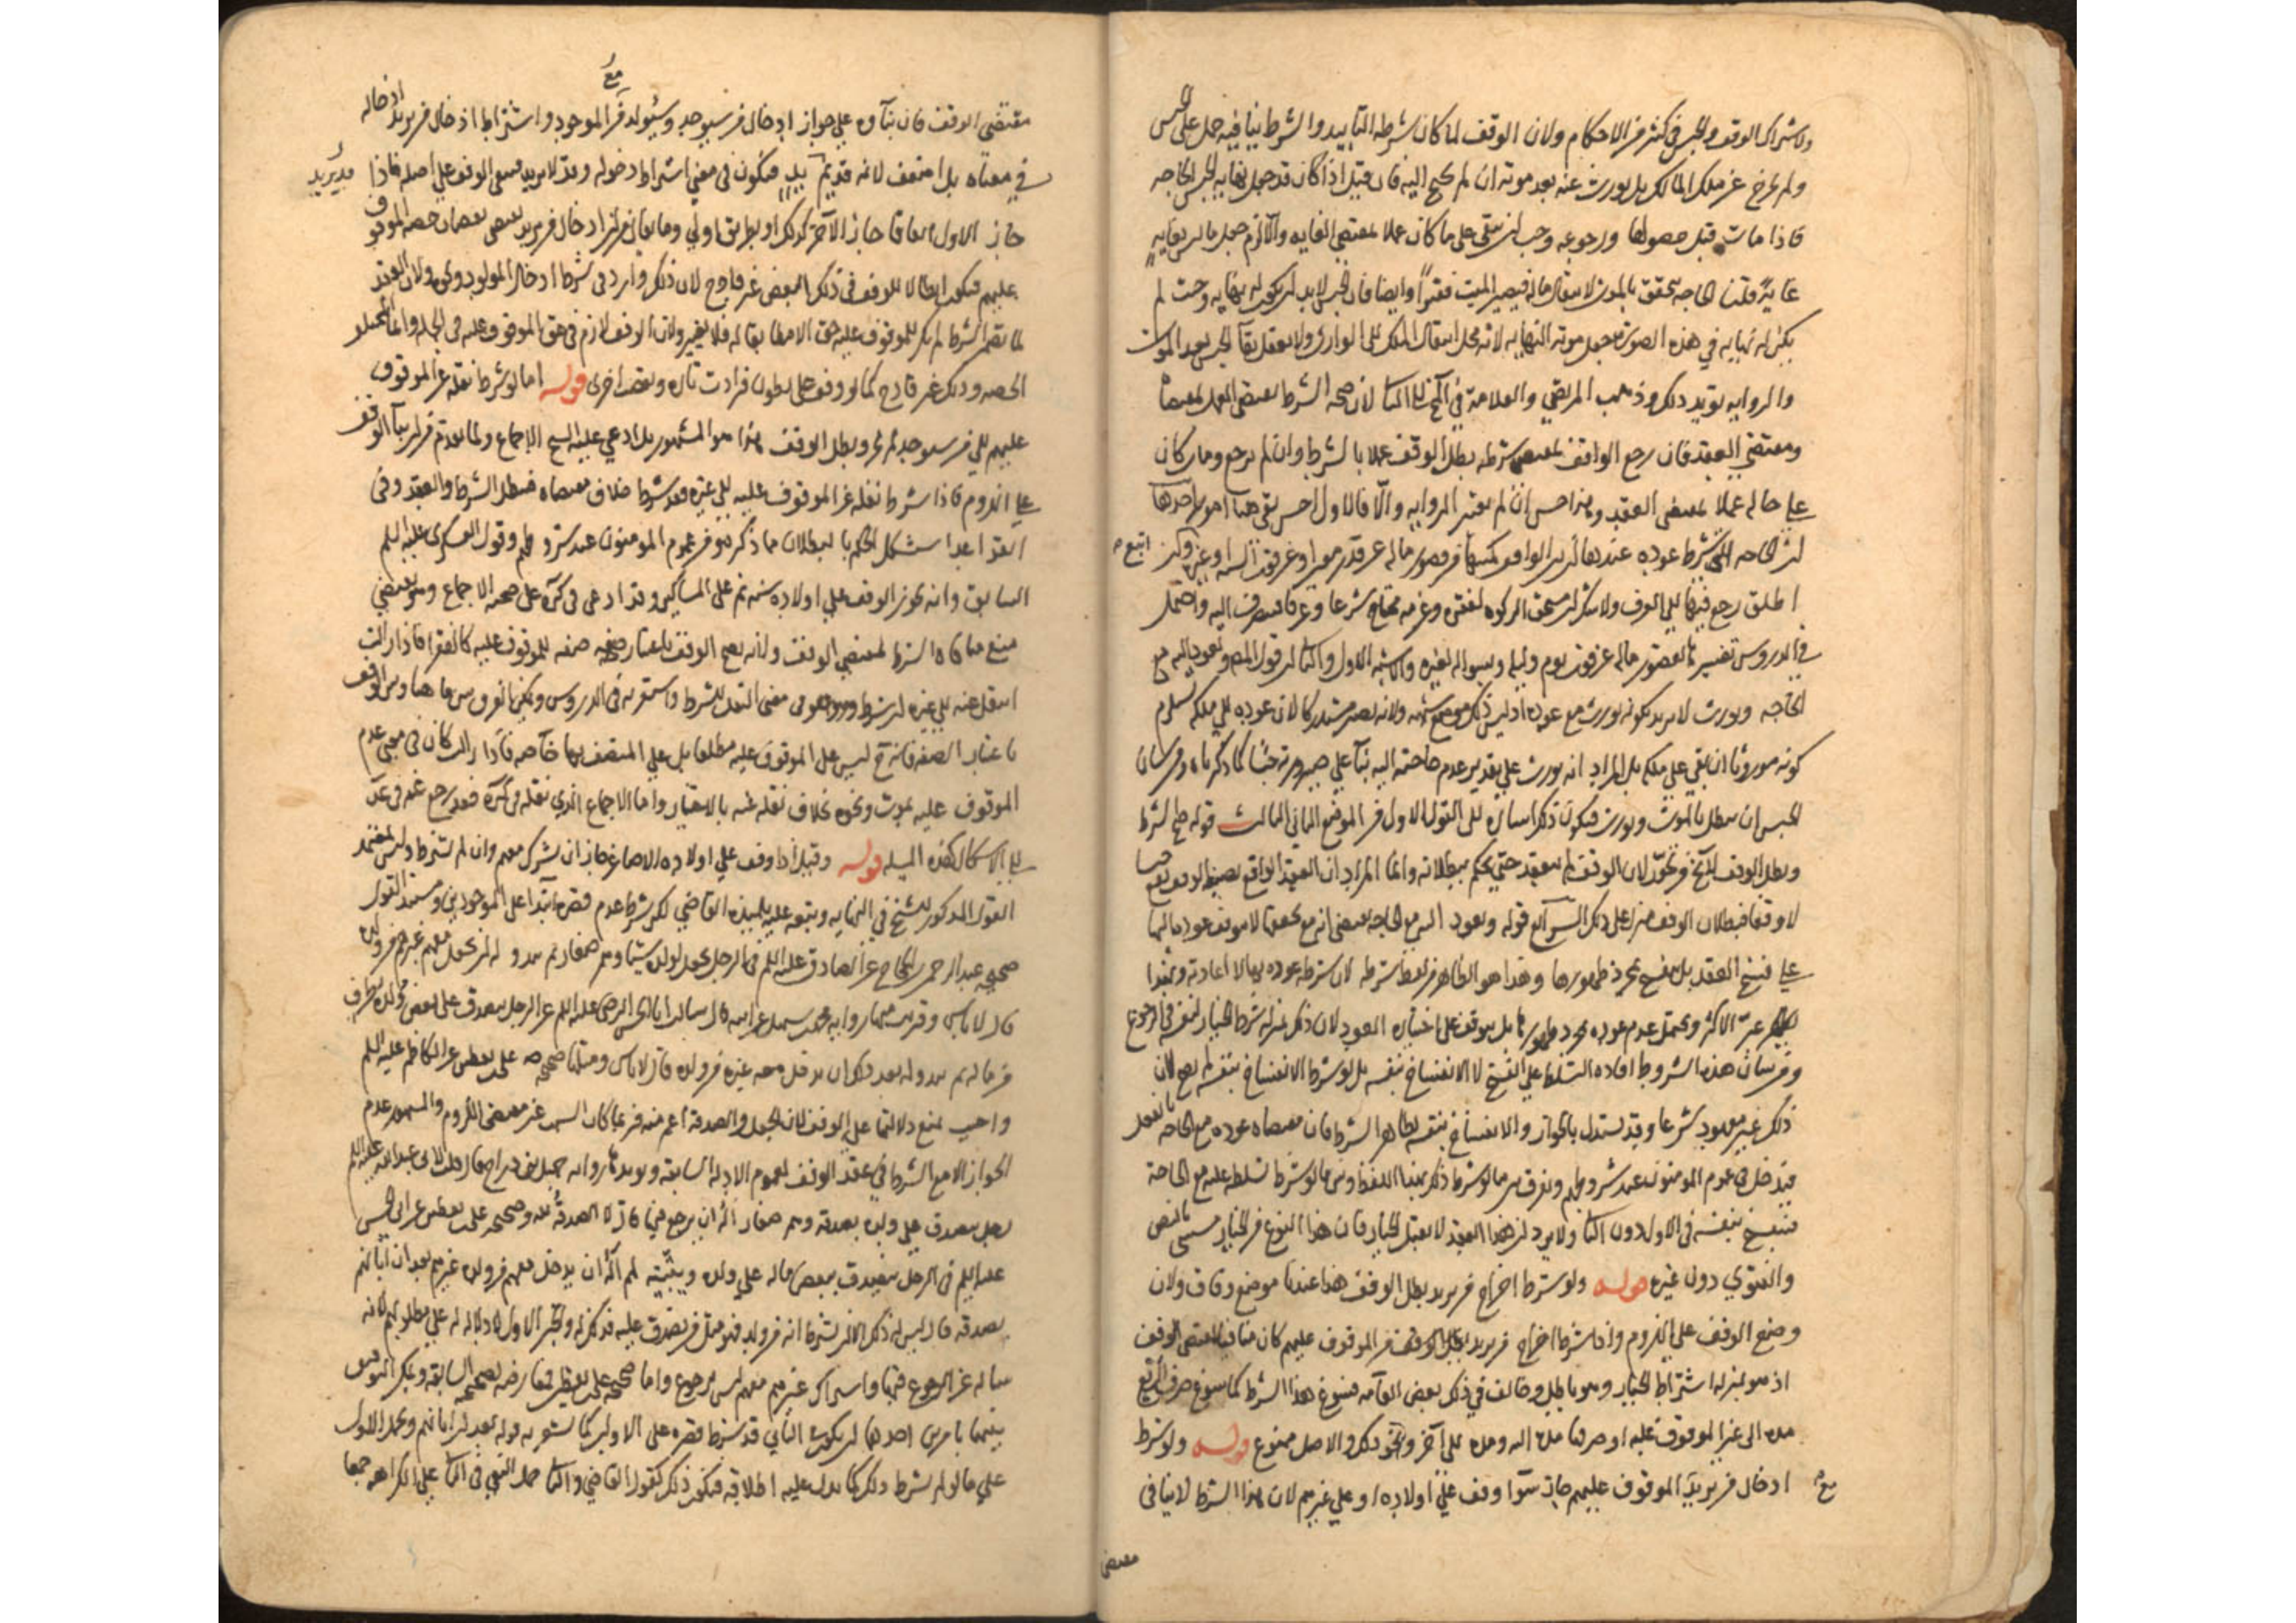 ولاشتراك الوقف والحبس في كثير من الاحكام ولان الوقف لما كان شرطه التابيد والشرط ينافيه حمل على الحبس
ولم يخرج عن ملك المالك بل يورث عنه بعد موته ان لم يحتج اليه فان قيل اذا كان قد جعل نهاية الحبس الحاجة
فاذا مات قبل حصولها ورجوعه وجب ان يبقى على ما كان عملا بمقتضى الغاية والا لزم جعل ما ليس بغاية
غاية قلنا الحاجة تحقق بالموت لانتقال ماله فيصير الميت فقيرا وايضا فان الحبس لابد ان يكون له نهاية وحيث لم
يكن له نهاية في هذه الصورة جعل موته النهاية لانه محل انتقال الملك الى الوارث ولا يعقل بقا الحبس بعد الموت
والرواية تؤيد ذلك وذهب المرتضى والعلامة في الى الثاني لان صحة الشرط يقتضي العمل بمقتضاه
ومقتضى العقد فان رجع الواقف بمقتضى شرطه بطل الوقف عملا بالشرط وان لم يرجع ومات كان
على حاله عملا بمقتضى العقد وهذا حسن ان لم يعتبر الرواية والا فالاول احسن بقي هنا امور احدها
ان الحاجة التي شرط عوده عندها ان الواقف من قصور ماله عن قدر او عن قوت السنة او غير ذلك
اطلق رجع فيها الى العرف ولا شك ان مستحق الزكوة لفقره وغرمه محتاج شرعا وعرفا فينصرف اليه واحتمل
في الدروس تفسيرها بقصور ماله عن قوت يوم وليلة وبسواله لغيره والاشبه الاول والثاني ان قول المصنف ويعود اليه مع
الحاجة ويورث لا يريد بكونه يورث مع عوده اذ ليس ذلك موضع شبهة ولانه يصير مستدركا لان عوده الى ملكه يستلزم
كونه موروثا ان بقي على ملكه بل المراد انه يورث على تقدير عدم حاجته اليه بناء على صيرورته حبسا كما ذكرناه ومن شان
الحبس ان يبطل بالموت ويورث فيكون ذلك اشارة الى القول الاول من الموضع الثاني الثالث قوله صح الشرط
وبطل الوقف لا يخ من تجوز لان الوقف لم ينعقد حتى يحكم ببطلانه وانما المراد ان العقد الواقع بصيغة الوقف يقع حبسا
لا وقفا فبطلان الوقف منزل على ذلك الرابع قوله ويعود اليه مع الحاجة يقتضي انه مع تحققها لا يتوقف عوده الى
على فسخ العقد بل ينفسخ بمجرد ظهورها وهذا هو الظاهر من لفظ شرطه لان شرطه عوده بها لا اعادته وبهذا
عبر الاكثر ويحتمل عدم عوده بمجرد ظهورها بل يتوقف على اختياره العود لان ذلك بمنزلة شرط الخيار لنفسه في الرجوع
ومن شان هذه الشروط افادة التسلط على الفسخ لا الانفساخ بنفسه بل لو شرط الانفساخ بنفسه لم يصح لان
ذلك غير معهود شرعا وقد يستدل بالجواز والانفساخ بنفسه لظاهر الشرط فان مقتضاه عوده مع الحاجة بالفعل
فيدخل في عموم المؤمنون عند شروطهم ويفرق بين ما لو شرط ذلك بهذا اللفظ وبين ما لو شرط تسلطه عليه مع الحاجة
فينفسخ بنفسه في الاول دون الثاني ولا يرد ان هذا العقد لا يقبل الخيار فان هذا النوع من الخيار مستثنى بالنص
والفتوى دون غيره قوله ولو شرط اخراج من يريد بطل الوقف هذا عندنا موضع وفاق ولان
وضع الوقف على اللزوم واذا شرط اخراج من يريد من الموقوف عليهم كان منافيا لمقتضى الوقف
اذ هو بمنزلة اشتراط الخيار وهو باطل وخالف في ذلك بعض العامة فسوغ هذا الشرط كما سوغ صرف الريع
مدة الى غير الموقوف عليه او صرفها مدة اليه ومدة الى اخر ونحو ذلك والاصل ممنوع قوله ولو شرط
ادخال من يريد مع الموقوف عليهم جاز سوا وقف على اولاده او على غيرهم لان هذا الشرط لا ينافي
مقتضى
مقتضى الوقف فان بناؤه على جواز ادخال من سيوجد وسيولد مع الموجود واشتراط ادخال من يريد ادخاله
في معناه بل اضعف لانه قد يريد فيكون في معنى اشتراط دخوله وقد لا يريد فيبقى الوقف على اصله فاذا
جاز الاول اتفاقا جاز الآخر كذلك او بطريق اولى وما يقال من ان ادخال من يريد يقتضي نقصان حصة الموقوف
عليهم فيكون ابطالا للوقف في ذلك البعض غير قادح لان ذلك وارد في شرط ادخال المولود ولان العقد
لما تضمن الشرط لم يكن للموقوف عليه حق الا مطابقا له فلا يتغير ولان الوقف لازم في حق الموقوف عليه في الجملة وانما المختلف
الحصة وذلك غير قادح كما لو وقف على بطون فزادت تارة ونقصت اخرى قوله اما لو شرط نقله عن الموقوف
عليهم الى من سيوجد لم يجز وبطل الوقف هذا هو المشهور بل ادعى عليه الشيخ الاجماع ولما تقدم من ان بنا الوقف
على اللزوم فاذا شرط نقله عن الموقوف عليه الى غيره فقد شرط خلاف مقتضاه فيبطل الشرط والعقد وفي
القواعد استشكل الحكم بالبطلان مما ذكر ومن عموم المؤمنون عند شروطهم وقول العسكري عليه السلم
السابق وانه يجوز الوقف على اولاده سنة ثم على المساكين وقد ادعى في كره على صحته الاجماع وهو يقتضي
منع منافاة الشرط لمقتضى الوقف ولانه يصح الوقف باعتبار صفة للموقوف عليه كالفقر فاذا زالت
انتقل عنه الى غيره ان شرط وهو في معنى النقل بالشرط واستقر به في الدروس ويمكن الفرق بين ما هنا وبين الوقف
باعتبار الصفة فانه ح ليس على الموقوف عليه مطلقا بل على المتصف بها خاصة فاذا زالت كان في معنى عدم
الموقوف عليه بموت ونحوه بخلاف نقله عنه بالاختيار واما الاجماع الذي نقله في كره فقد رجع عنه في عد
الى الاشكال كهذه المسئلة قوله وقيل اذا وقف على اولاده الاصاغر جاز ان يشرك معهم وان لم يشترط وليس بمعتمد
القول المذكور للشيخ في النهاية وتبعه عليه تلميذه القاضي لكن شرط عدم قصره ابتداء على الموجودين ومستند القول
صحيحة عبد الرحمن بن الحجاج عن الصادق عليه السلم في الرجل يجعل لولده شيئا وهم صغار ثم يبدو له ان يجعل معهم غيرهم من ولده
قال لا باس وقريب منها رواية محمد بن سهل عن ابيه قال سالت ابا الحسن الرضا عليه السلم عن الرجل يتصدق على بعض ولده بطرف
من ماله ثم يبدو له بعد ذلك ان يدخل معه غيره من ولده قال لا باس ومثلها صحيحة علي بن يقطين عن الكاظم عليه السلم
واجيب بمنع دلالتها على الوقف لان الجعل والصدقة اعم منه فربما كان السبب غير مقتضى اللزوم والمشهور عدم
الجواز الا مع الشرط في عقد الوقف لعموم الادلة السابقة ويؤيدها رواية جميل بن دراج قال قلت لابي عبد الله عليه السلم
رجل تصدق على ولده بصدقة وهم صغار اله ان يرجع فيها قال لا الصدقة لله وصحيحة علي بن يقطين عن ابي الحسن
عليه السلم في الرجل يتصدق ببعض ماله على ولده ويبينه لهم اله ان يدخل معهم من ولده غيرهم بعد ان ابانهم
بصدقة قال ليس له ذلك الا ان يشترط انه من ولد فهو مثل من تصدق عليه فذلك له والخبر الاول لا دلالة له على مطلوبهم لانه
ساله عن الرجوع فيها واشراك غيرهم معهم ليس برجوع واما صحيحة علي بن يقطين فمعارضة بصحيحته السابقة ويمكن التوفيق
بينهما بامرين احدهما ان يكون الثاني قد شرط قصره على الاولين كما يشعر به قوله بعد ان ابانهم ويحمل الاول
على ما لو لم يشرط ذلك كما يدل عليه اطلاقه فيكون ذلك كقول القاضي والثاني حمل النفي في الثاني على الكراهة جمعا